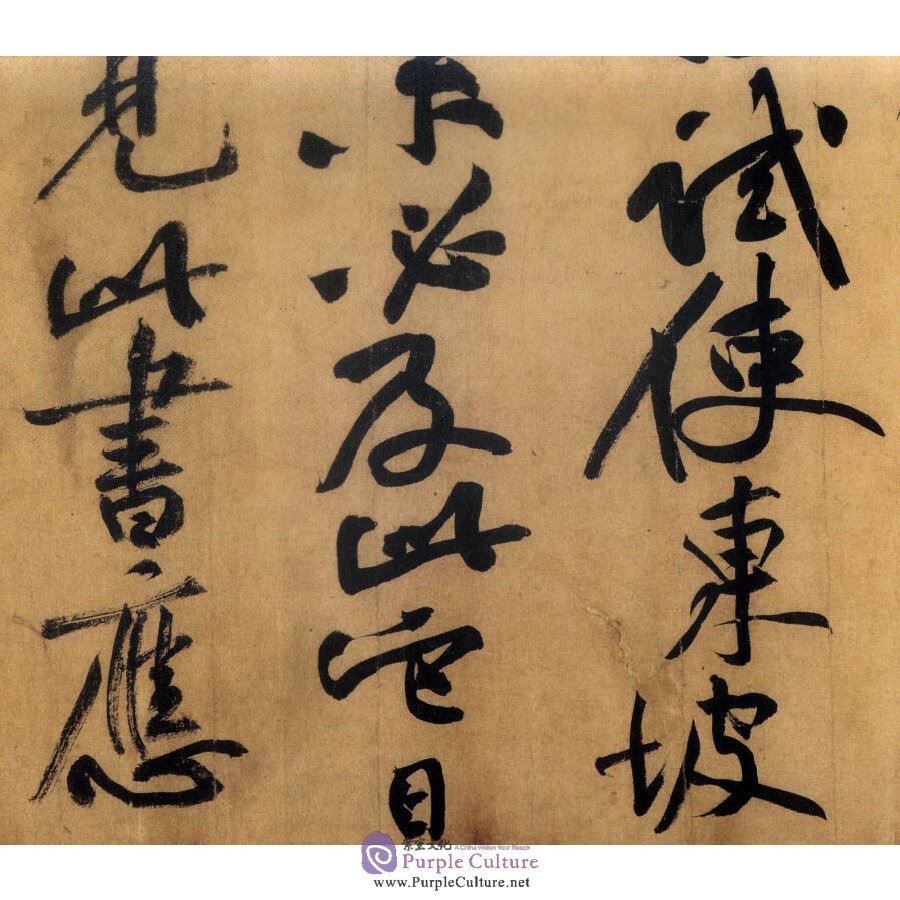 試使東坡
未必及此它日
見此書應
A China Within Your Reach
Purple Culture
www.PurpleCulture.net